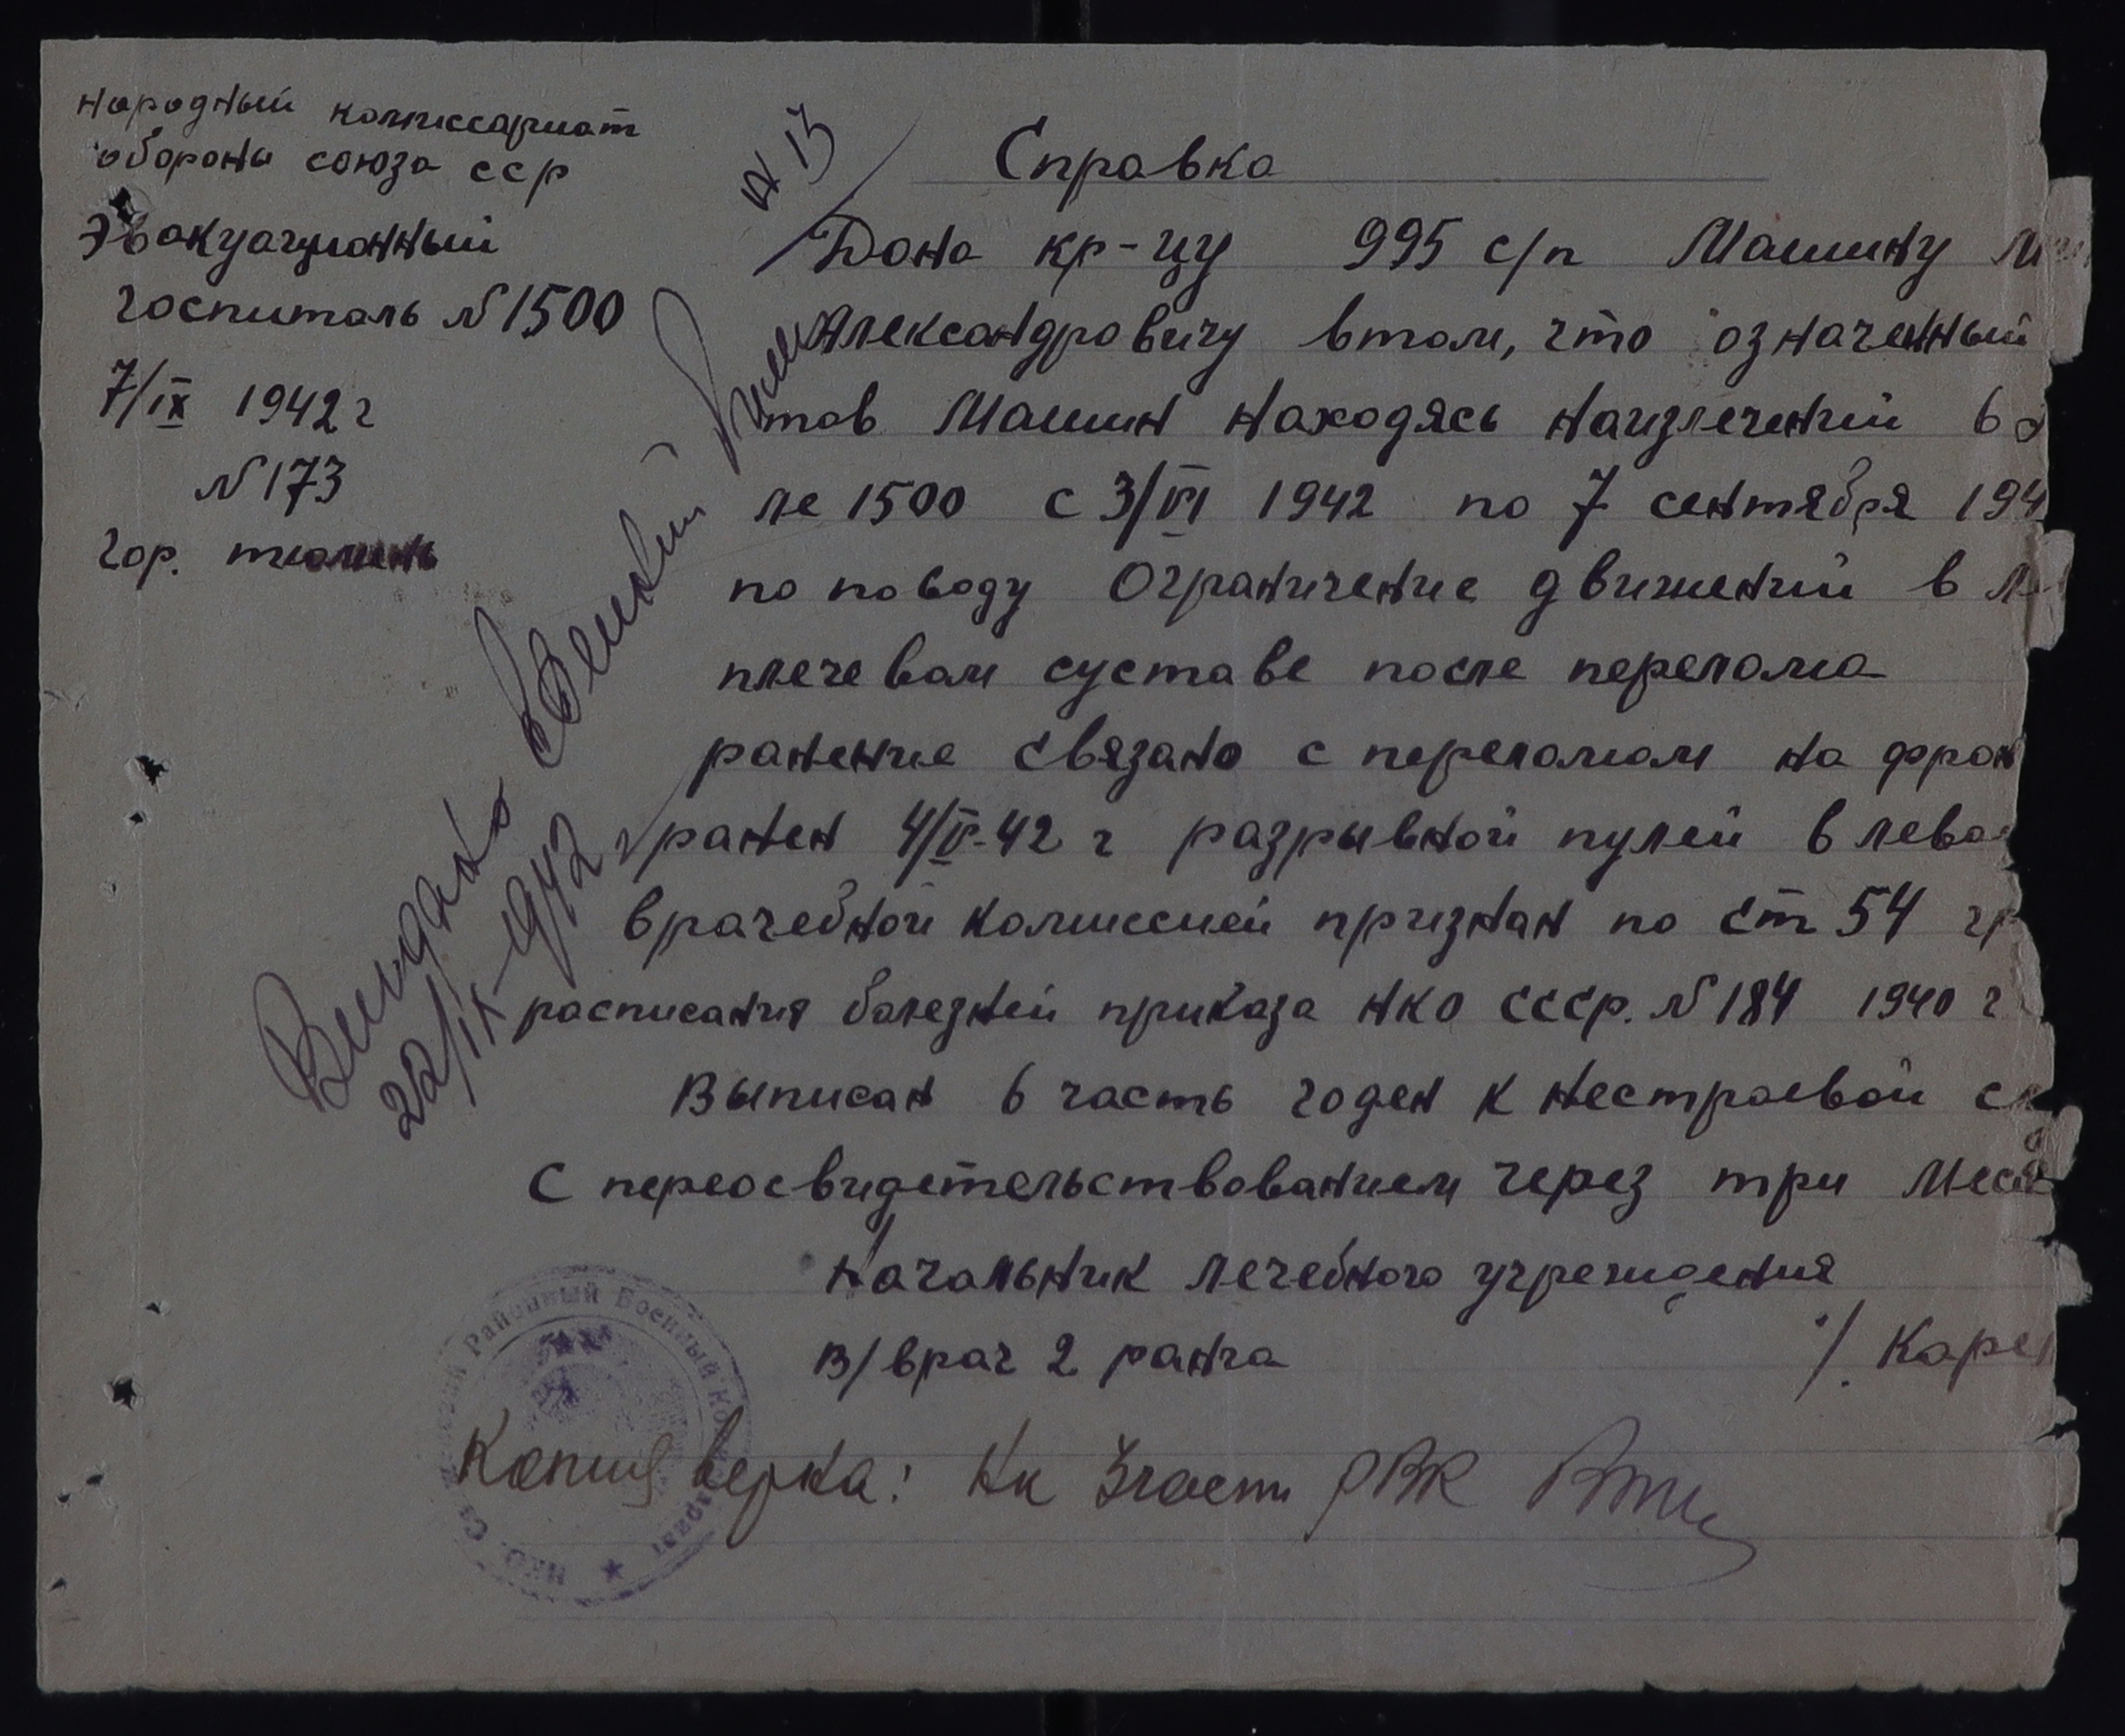 Народный комиссариат
обороны союза сср
Эвакуационный
госпиталь N 1500
7/IX 1942 г
N 173
гор. тюмень
Справка
Дана кр-цу 995 с/п Машину
Александровичу втом, что означенный
тов Машин находясь наизлечений в
ле 1500 с 3/VI 1942 по 7 сентября 194
по поводу Ограничение движений в
плечевом суставе после перелома
ранение связано с переломом на фрон
ранен 4/IV-42 г разрывной пулей в лево
врачебной комиссией признан по ст 54 гр
расписания болезней приказа НКО СССР. N 184 1940 г
Выписан в часть годен к нестроевой с
С переосвидетельствованием через три меся
Начальник лечебного учреждения
в/врач 2 ранга /. Каре
Выдано Военкий билет
22/IX-1942 г
Копия верна: Нк 3 части РВК
Районный Военный Ко
НКО.